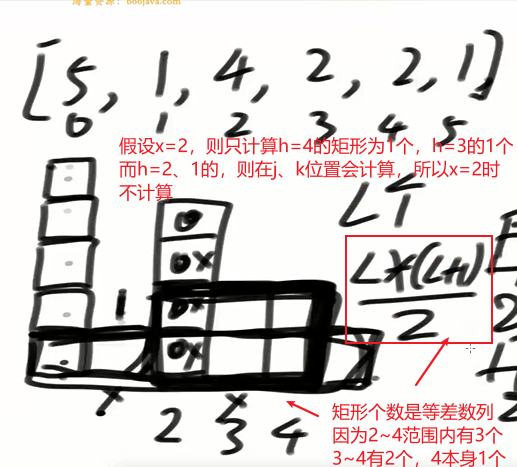 海量资源：666java.com
[5, 1, 4, 2, 2, 1]
0 1 2 3 4 5
假设x=2，则只计算h=4的矩形为1个，h=3的1个
而h=2、1的，则在j、k位置会计算，所以x=2时
不计算
L*(L+1)
2
1
2 3 4
矩形个数是等差数列
因为2~4范围内有3个
3~4有2个，4本身1个